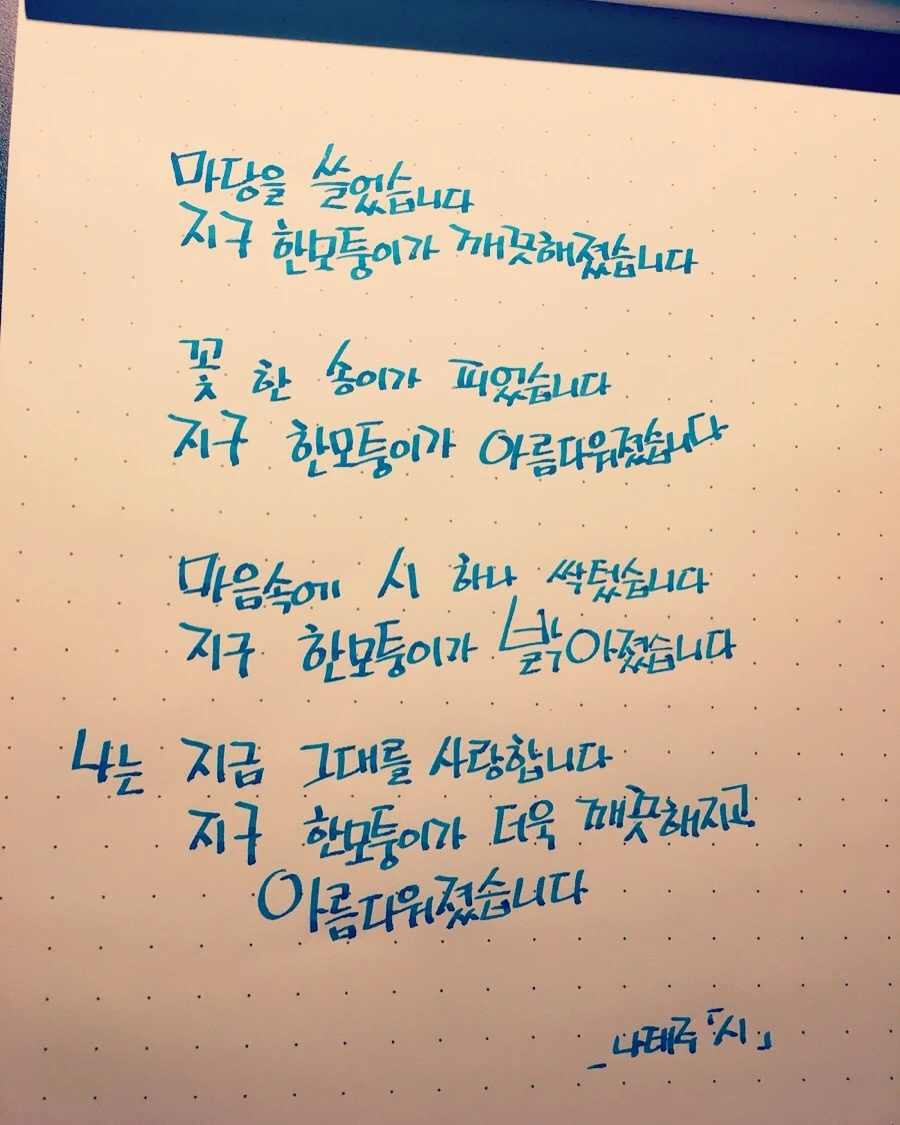 마당을 쓸었습니다
지구 한모퉁이가 깨끗해졌습니다
꽃 한 송이가 피었습니다
지구 한모퉁이가 아름다워졌습니다
마음속에 시 하나 싹텄습니다
지구 한모퉁이가 밝아졌습니다
나는 지금 그대를 사랑합니다
지구 한모퉁이가 더욱 깨끗해지고
아름다워졌습니다
_나태주 「시」